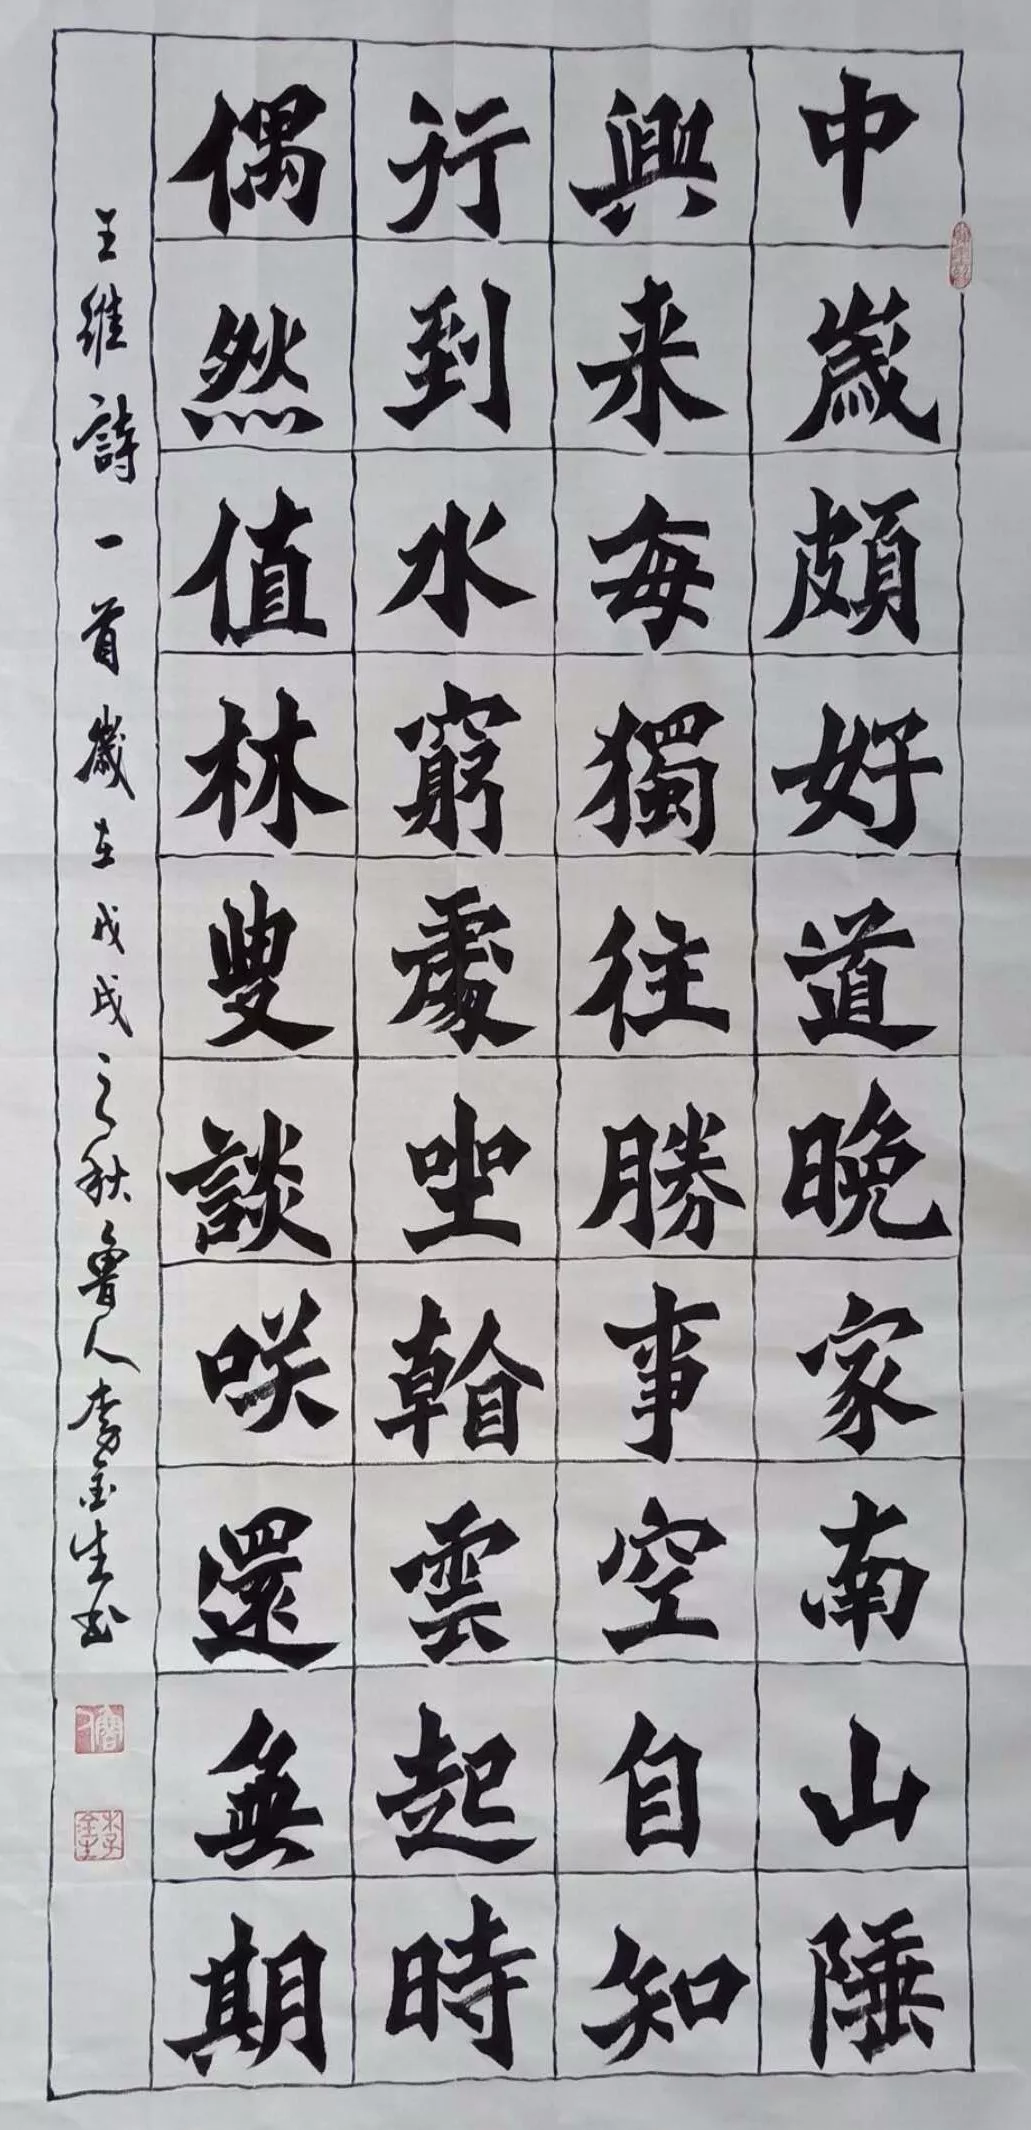 中歲頗好道晚家南山陲
興来每獨往勝事空自知
行到水窮處坐看雲起時
偶然值林叟談咲還無期
王維詩一首歲在戊戌之秋魯人李金生书
魯人
李金生